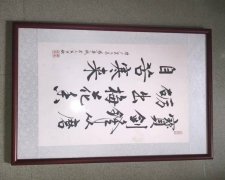 寶劍鋒從磨
砺出梅花香
自苦寒来